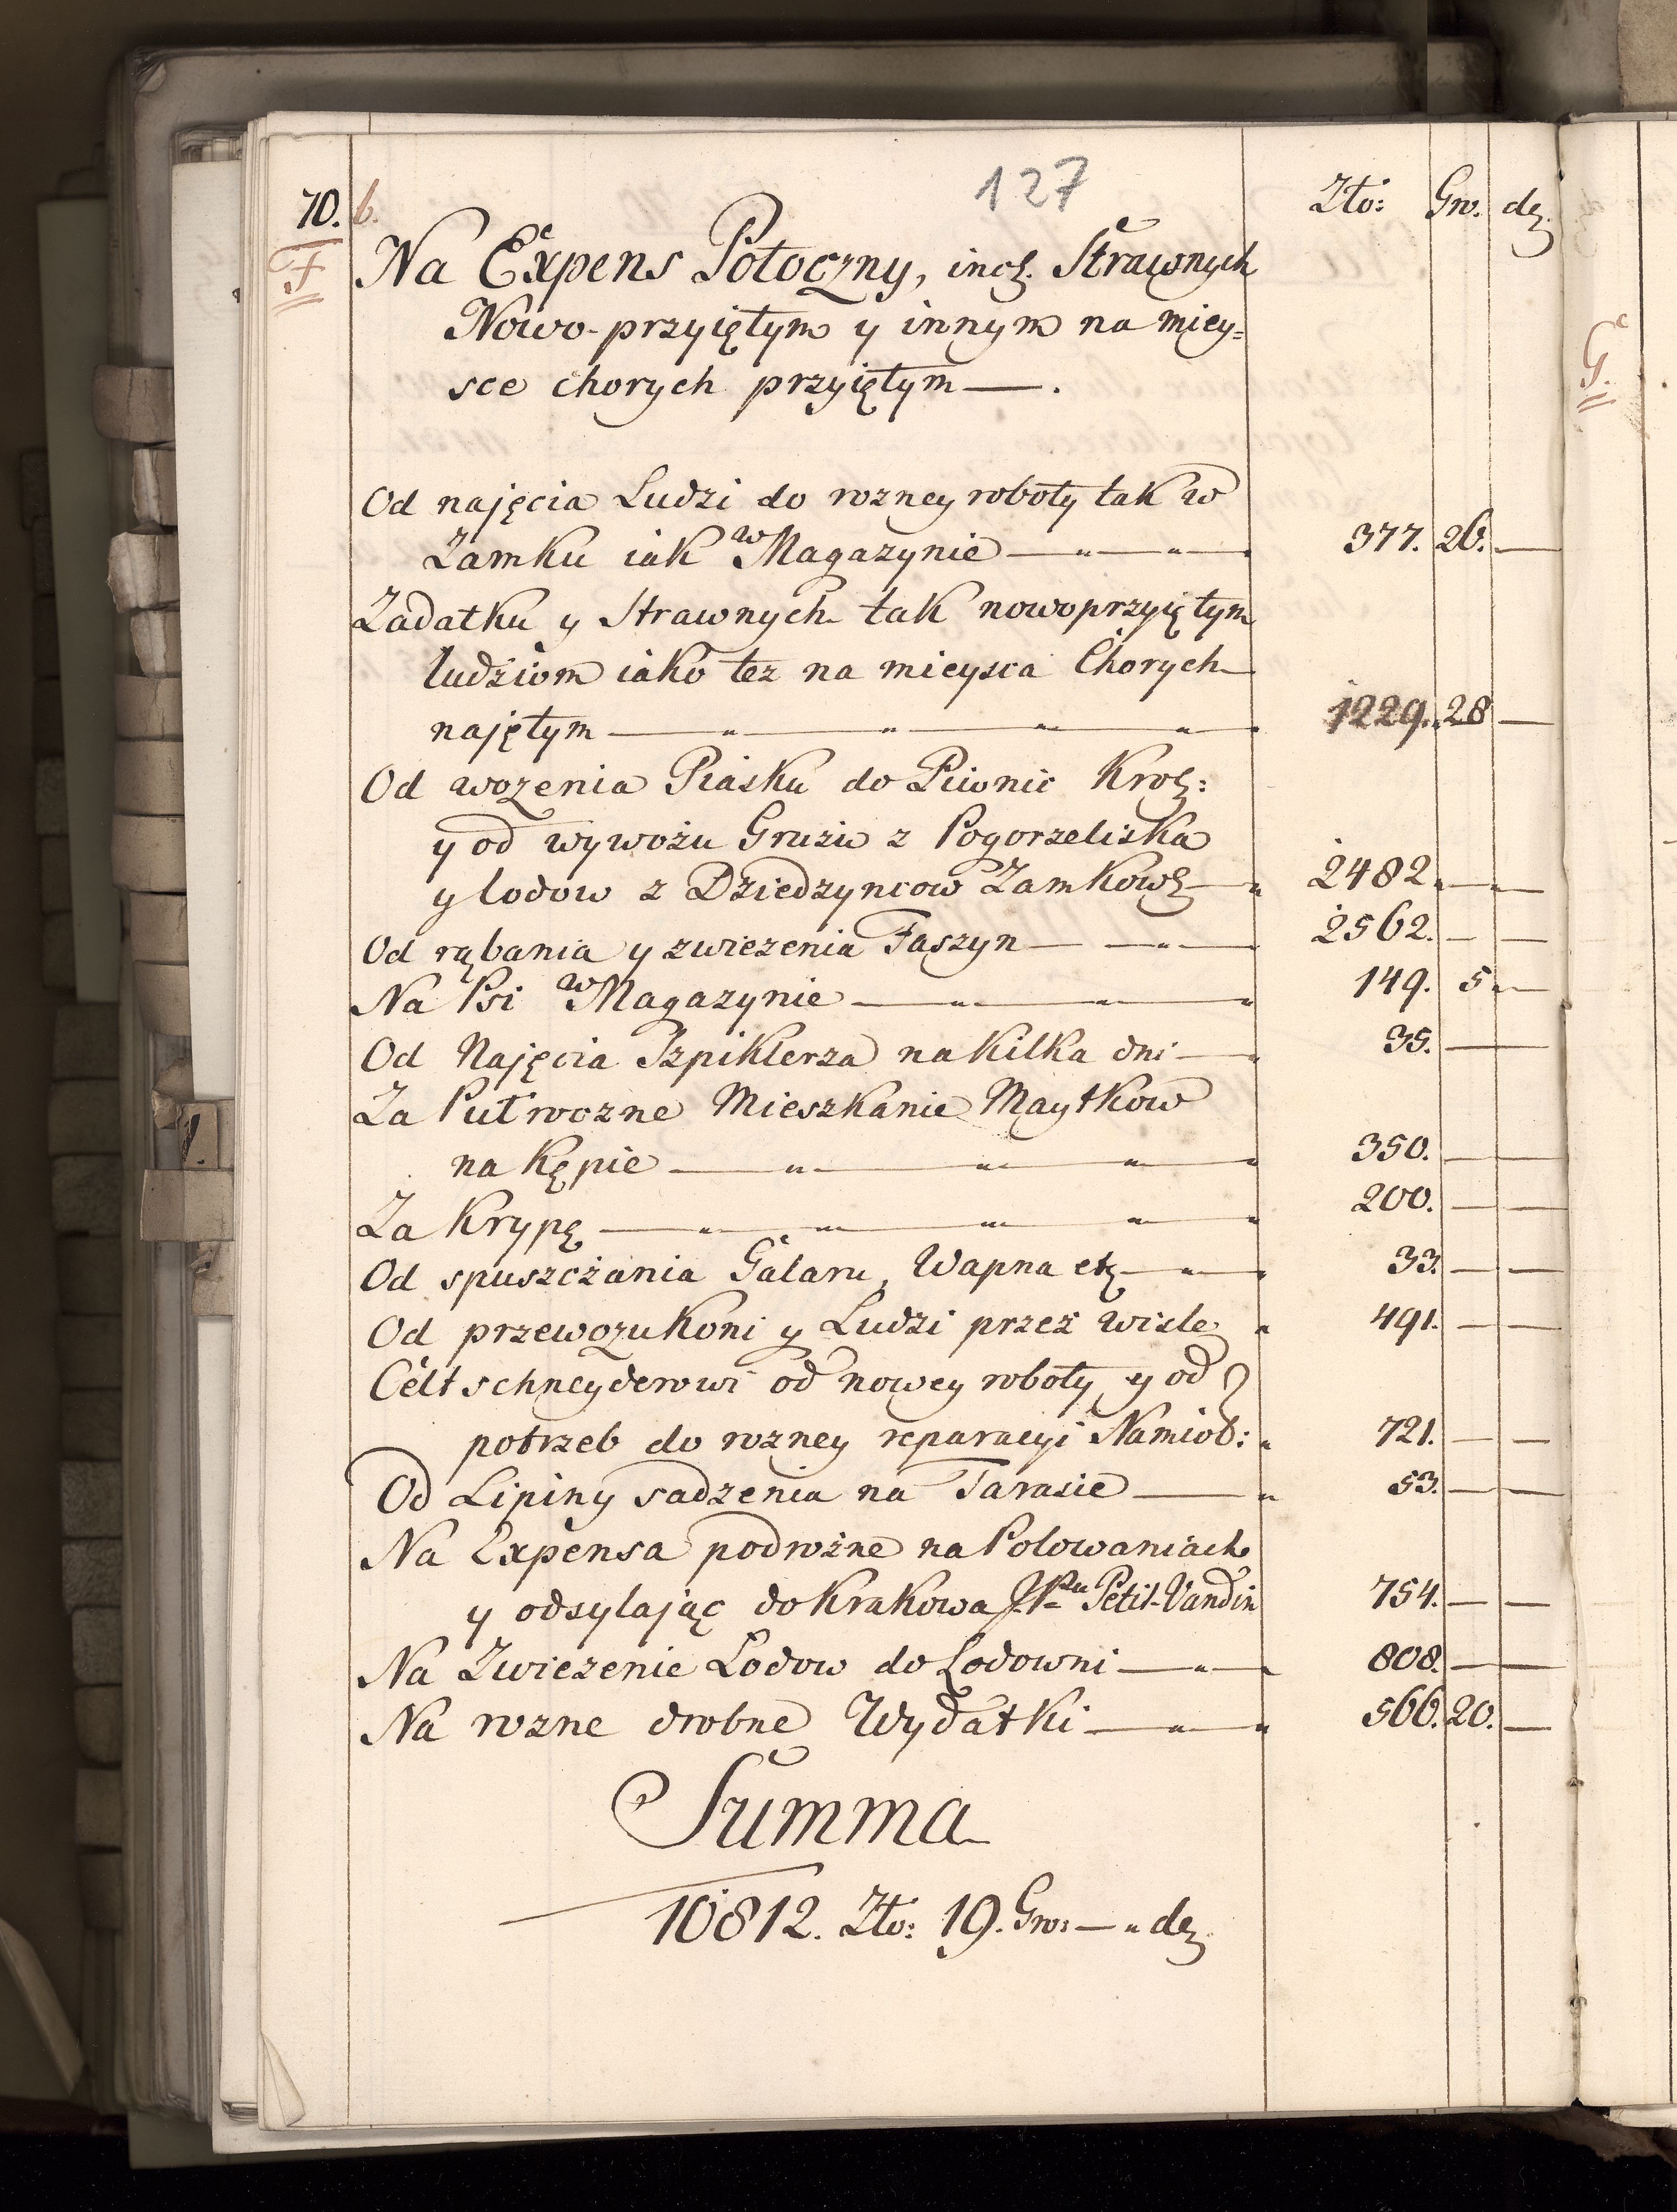 127
70. b. Zło: Gr. de.
F Na Expens Potoczny, incl. Strawnych
Nowo-przyiętym y innym na miey=
sce chorych przyiętym — .
G.
Od najęcia Ludzi do rozney roboty tak w
Zamku iak w Magazynie — „ — „ — 377. 26. —
Zadatku y Strawnych tak nowoprzyiętym
ludziom iako tez na mieysca Chorych
najętym — „ — „ — „ — „ — 1229. 28 —
Od wozenia Piasku do Piwnic Krol:
y od wywozu Gruzu z Pogorzeliska
y lodow z Dziedzyncow Zamkow — „ 2482. — „ —
Od rąbania y zwiezenia Faszyn — — „ — 2562. — —
Na Psi w Magazynie — „ — „ — „ 149. 5 „ —
Od Najęcia Szpiklerza na kilka dni — „ 35. — —
Za Putroczne Mieszkanie Maytkow
na Kępie — „ — „ — „ — „ 350. — —
Za Krypę — „ — „ — „ — „ — „ 200. — —
Od spuszczania Galaru, Wapna etc — „ — „ 33. — —
Od przewozu Koni y Ludzi przez Wisle „ 491. — —
Celtschneyderowi od nowey roboty y od
potrzeb do rozney reparacyi Namiot: „ 721. — —
Od Lipiny sadzenia na Tarasie — „ 53. — —
Na Expensa podrozne na Polowaniach
y odsylając do Krakowa Petit-Vandin 754. — —
Na Zwiezenie Lodow do Lodowni — „ — 808. — —
Na rozne drobne Wydatki — „ — „ 566. 20. —
Summa
10812. Zło: 19. Gr: — „ de